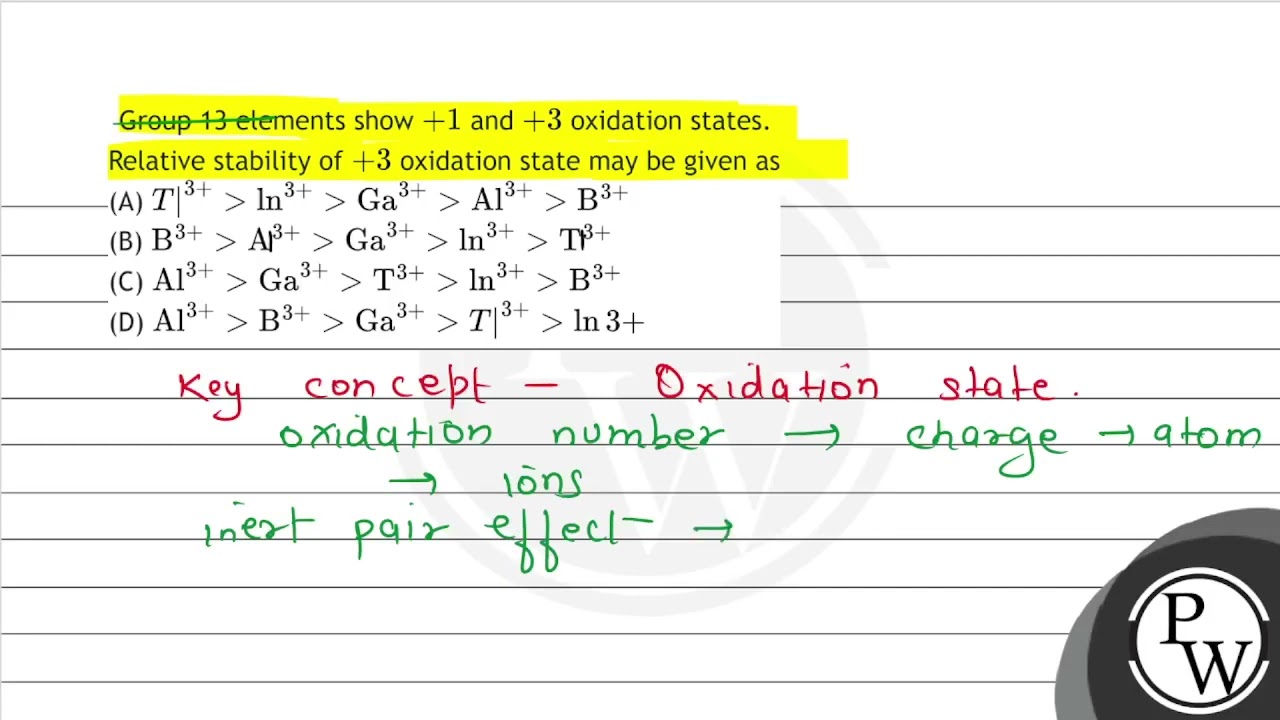 Group 13 elements show +1 and +3 oxidation states.
Relative stability of +3 oxidation state may be given as
(A) T|³⁺ > ln³⁺ > Ga³⁺ > Al³⁺ > B³⁺
(B) B³⁺ > Al³⁺ > Ga³⁺ > ln³⁺ > Tl³⁺
(C) Al³⁺ > Ga³⁺ > T³⁺ > ln³⁺ > B³⁺
(D) Al³⁺ > B³⁺ > Ga³⁺ > T|³⁺ > ln 3+
Key concept – Oxidation state.
oxidation number → charge → atom
→ ions
inert pair effect →
P
W